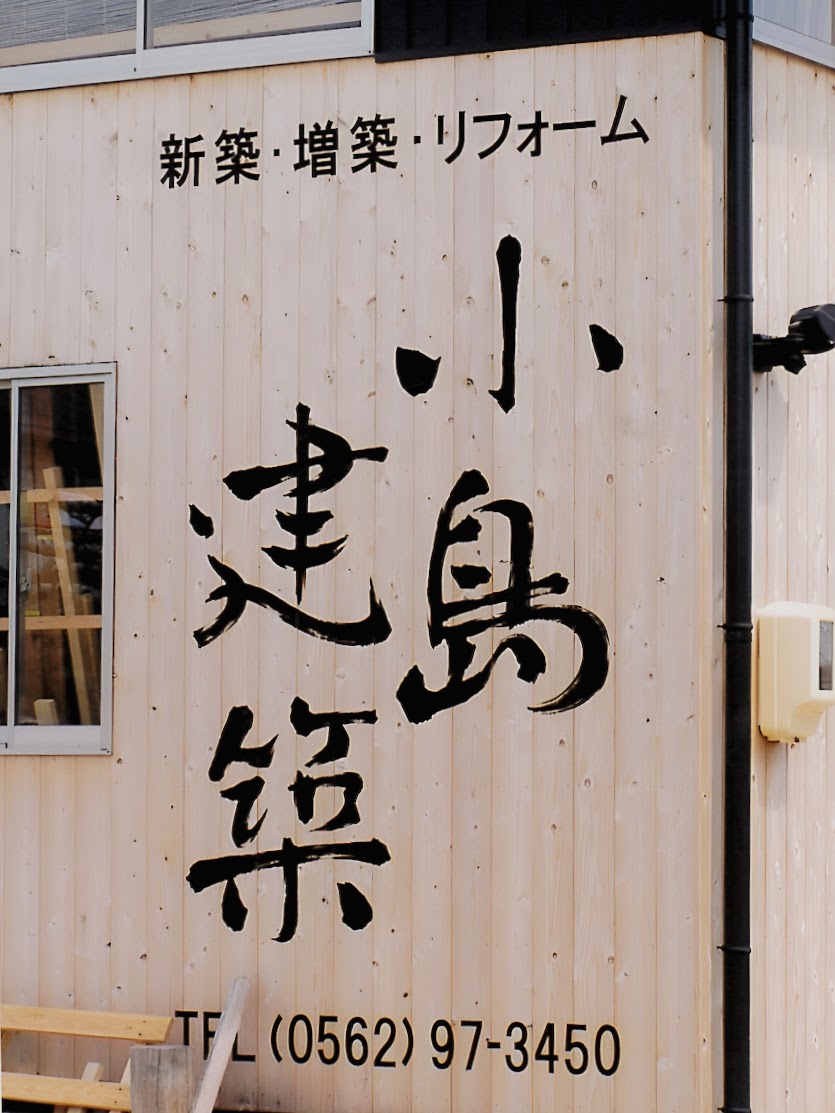 新築・増築・リフォーム
小島
建築
TEL (0562) 97-3450